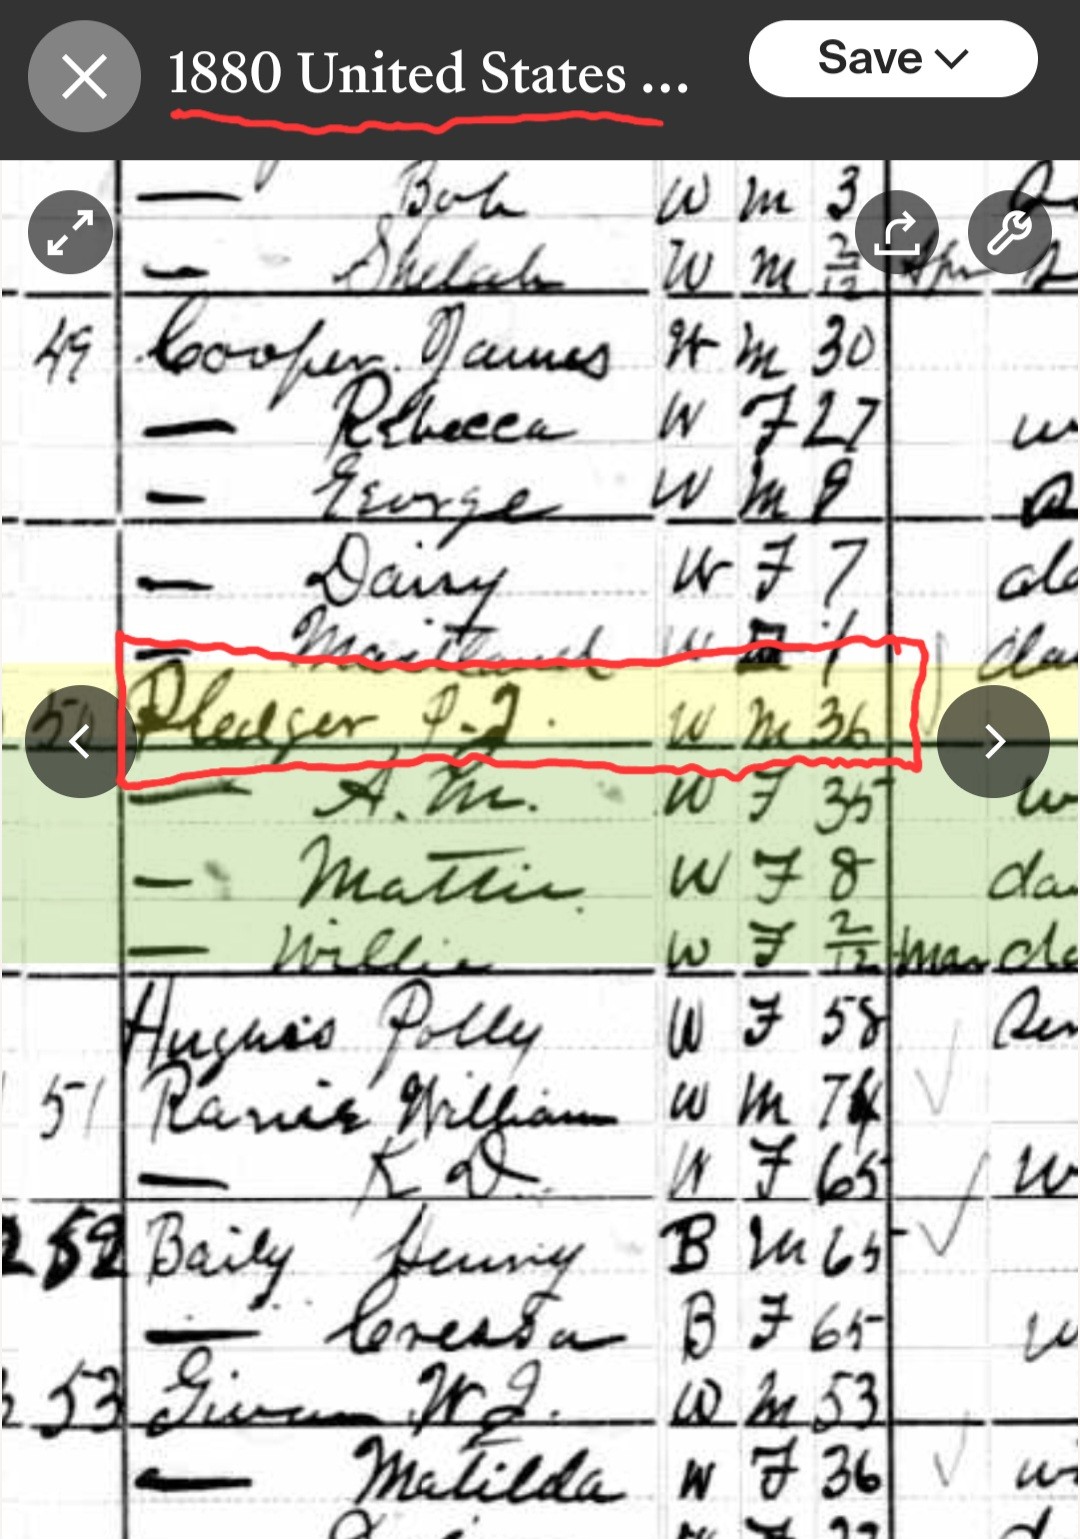 1880 United States ...
Save
— Bob W M 3
— W M 2/12
49 Cooper James W M 30
— Rebecca W F 27
— George W M 9
— Daisy W F 7
— Maitland W 1 da
Pledger P. J. W M 36
— A. M. W F 35 w
— Mattie W F 8 da
— Willie W F 2/12 Mar da
Polly W F 58
51 William W M 74
— K D. W F 65 W
52 Baily Henry B M 65
— B F 65 w
53 W. J. W M 53
— Matilda W F 36 wi